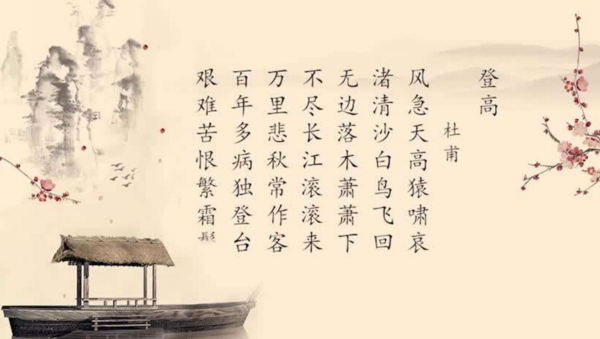 登高
杜甫
风急天高猿啸哀
渚清沙白鸟飞回
无边落木萧萧下
不尽长江滚滚来
万里悲秋常作客
百年多病独登台
艰难苦恨繁霜